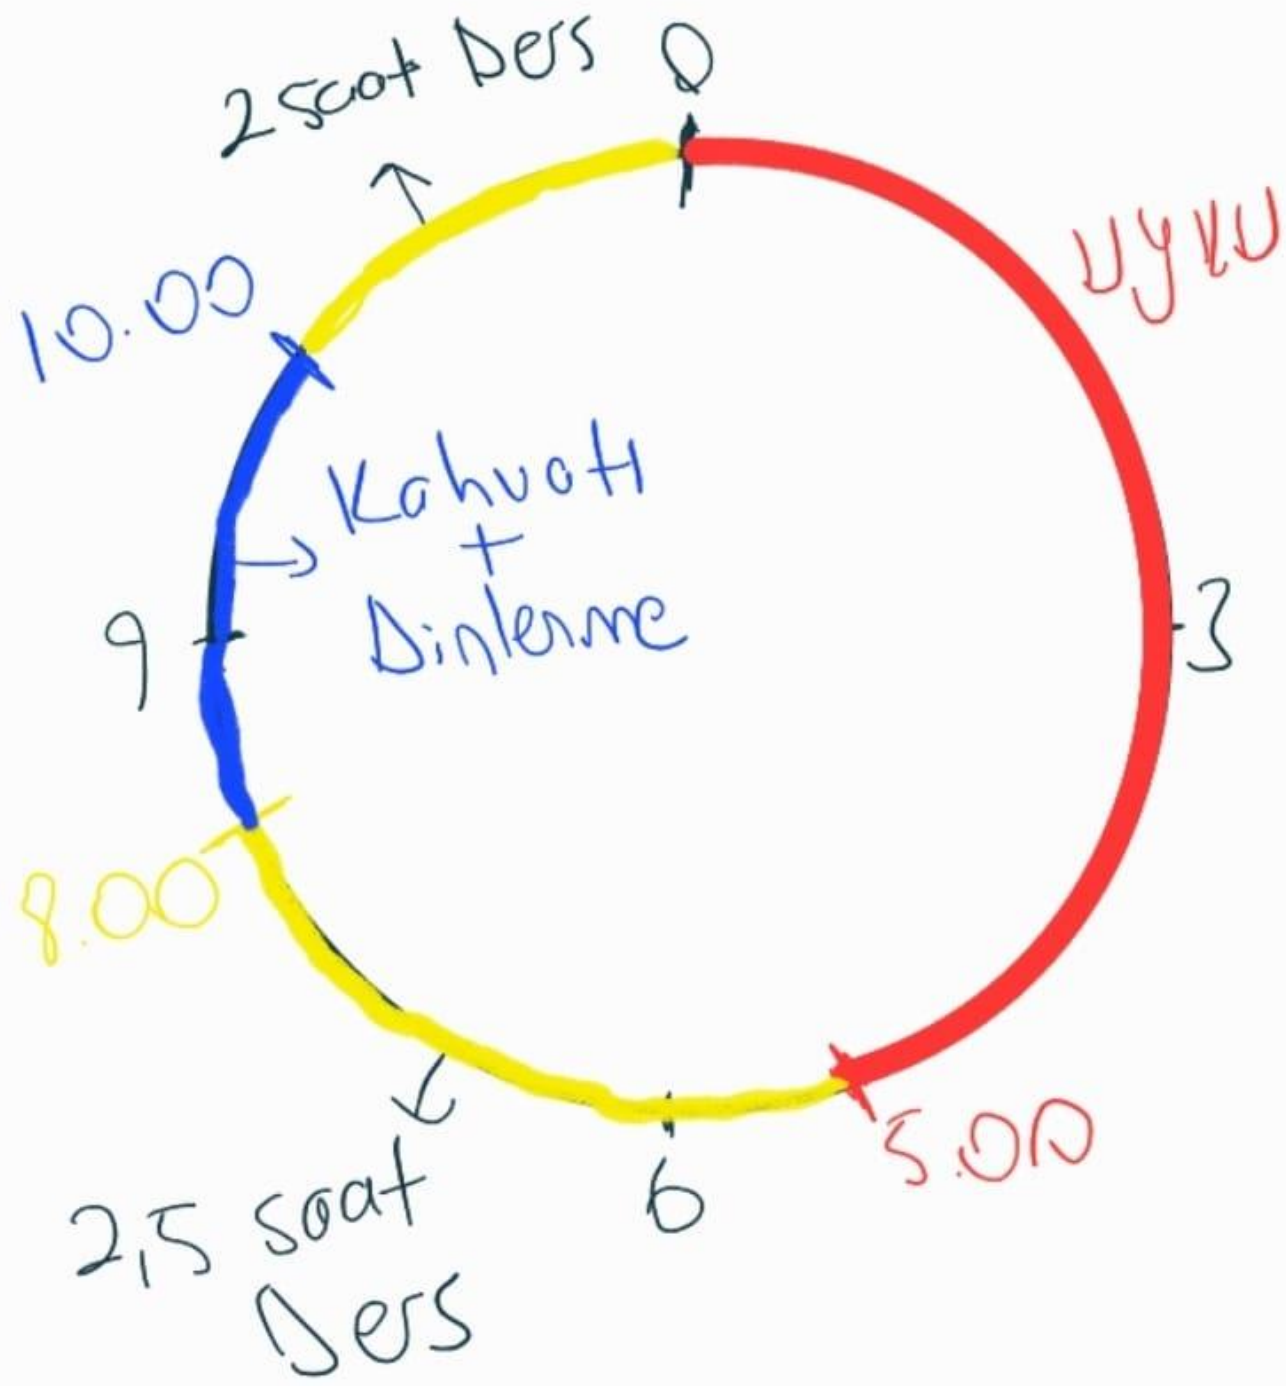 2 saat Ders
0
Uyku
10.00
Kahvaltı
+
Dinlenme
9
3
8.00
5.00
6
2,5 saat
Ders